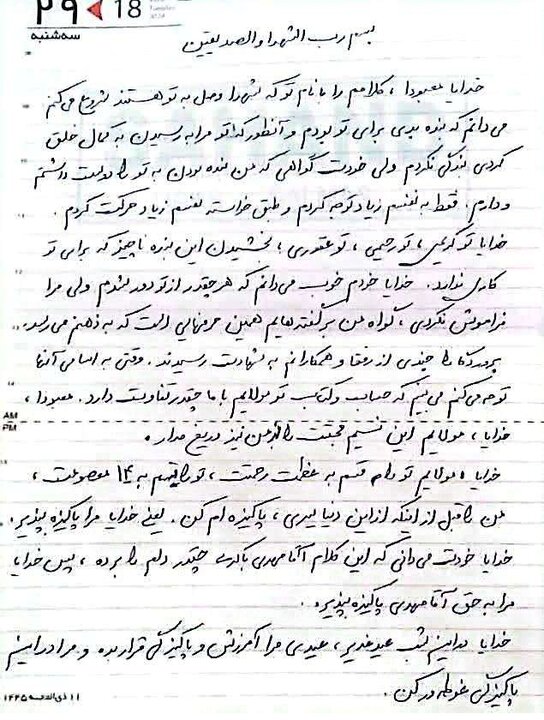 ۲۹ 18
سه‌شنبه
بسم رب الشهدا و الصدیقین
خدایا معبودا ، کلامم را با نام تو که شهدا وصل به تو هستند شروع می‌کنم
می‌دانم که بنده بدی برای تو بودم و آنطور که تو مرا به رسیدن به کمال خلق
کردی بندگی نکردم ولی خودت گواهی که من بنده بودن به تو را دوست داشتم
و دارم. فقط به نفسم زیاد توجه کردم و طبق خواسته نفسم زیاد حرکت کردم.
خدایا تو کریمی ، تو رحیمی ، تو غفوری ؛ بخشیدن این بنده ناچیز که برای تو
کاری ندارد. خدایا خودم خوب می‌دانم که هر چقدر از تو دور شدم ولی مرا
فراموش نکردی ، گواه من بر گفته‌هایم همین حرفهایی است که به ذهنم می‌رسد.
پروردگارا چندی از رفقا و همکارانم به شهادت رسیدند. وقتی به اسامی آنها
توجه می‌کنم می‌بینم که حساب و کتاب تو مولایم با ما چقدر تفاوت دارد. معبودا ،
AM
PM
خدایا ، مولایم این نسیم محبتت را از من نیز دریغ مدار .
خدایا ، مولایم تو را قسم به عظمت رحمتت ، تو را قسم به ۱۴ معصومت ،
من را قبل از اینکه از این دنیا ببری ، پاکیزه‌ام کن. یعنی خدایا مرا پاکیزه بپذیر.
خدایا خودت می‌دانی که این کلام آقا مهدی باکری چقدر دلم را برده ، پس خدایا
مرا به حق آقا مهدی پاکیزه بپذیر.
خدایا در این شب عید غدیر ، عیدی مرا آمرزش و پاکیزگی قرار بده و مرا در این
پاکیزگی غوطه‌ور کن.
۱۱ ذی‌القعده ۱۴۴۵